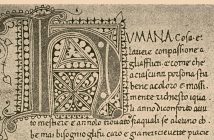 HVMANA Cosa e
lauere conpassione a
gliafflitti & come che
aciascuna persona stia
bene acoloro e massi
mente richesto iqua
li anno diconforto auu
to mestiere & annolo trouato fraquali se alcuno
be mai bisogno gli fu caro o gia nericieuette piace